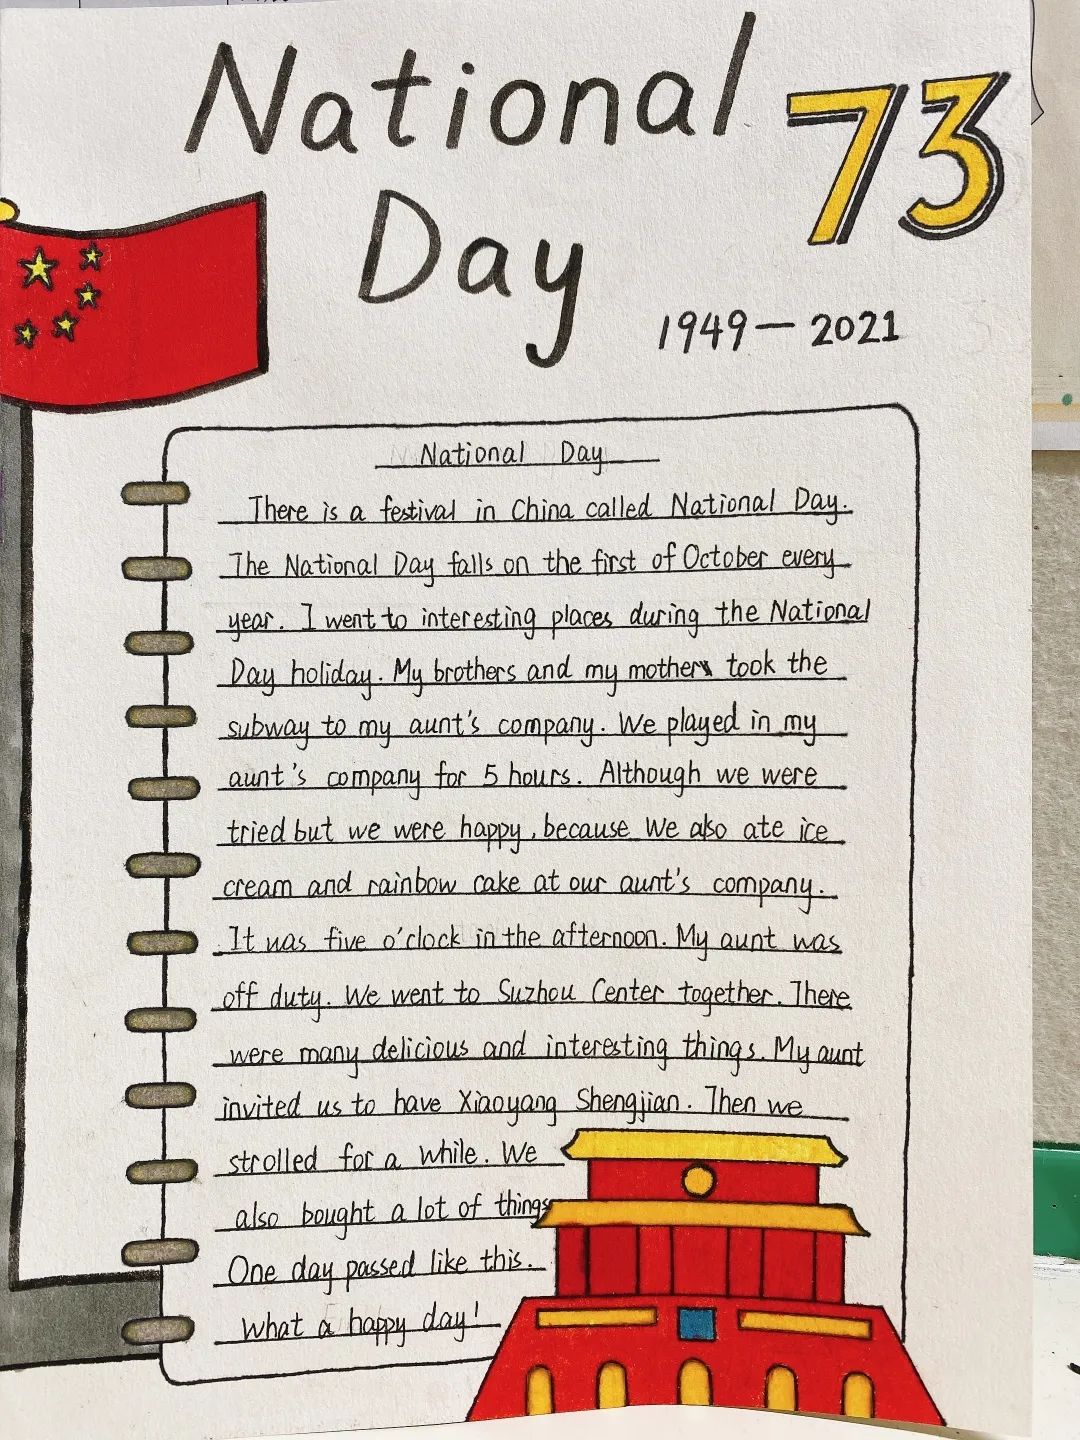 National 73
Day
1949—2021
National Day
There is a festival in China called National Day.
The National Day falls on the first of October every
year. I went to interesting places during the National
Day holiday. My brothers and my mother took the
subway to my aunt's company. We played in my
aunt's company for 5 hours. Although we were
tried but we were happy, because We also ate ice
cream and rainbow cake at our aunt's company.
It was five o'clock in the afternoon. My aunt was
off duty. We went to Suzhou Center together. There
were many delicious and interesting things. My aunt
invited us to have Xiaoyang Shengjian. Then we
strolled for a while. We
also bought a lot of things
One day passed like this.
What a happy day!